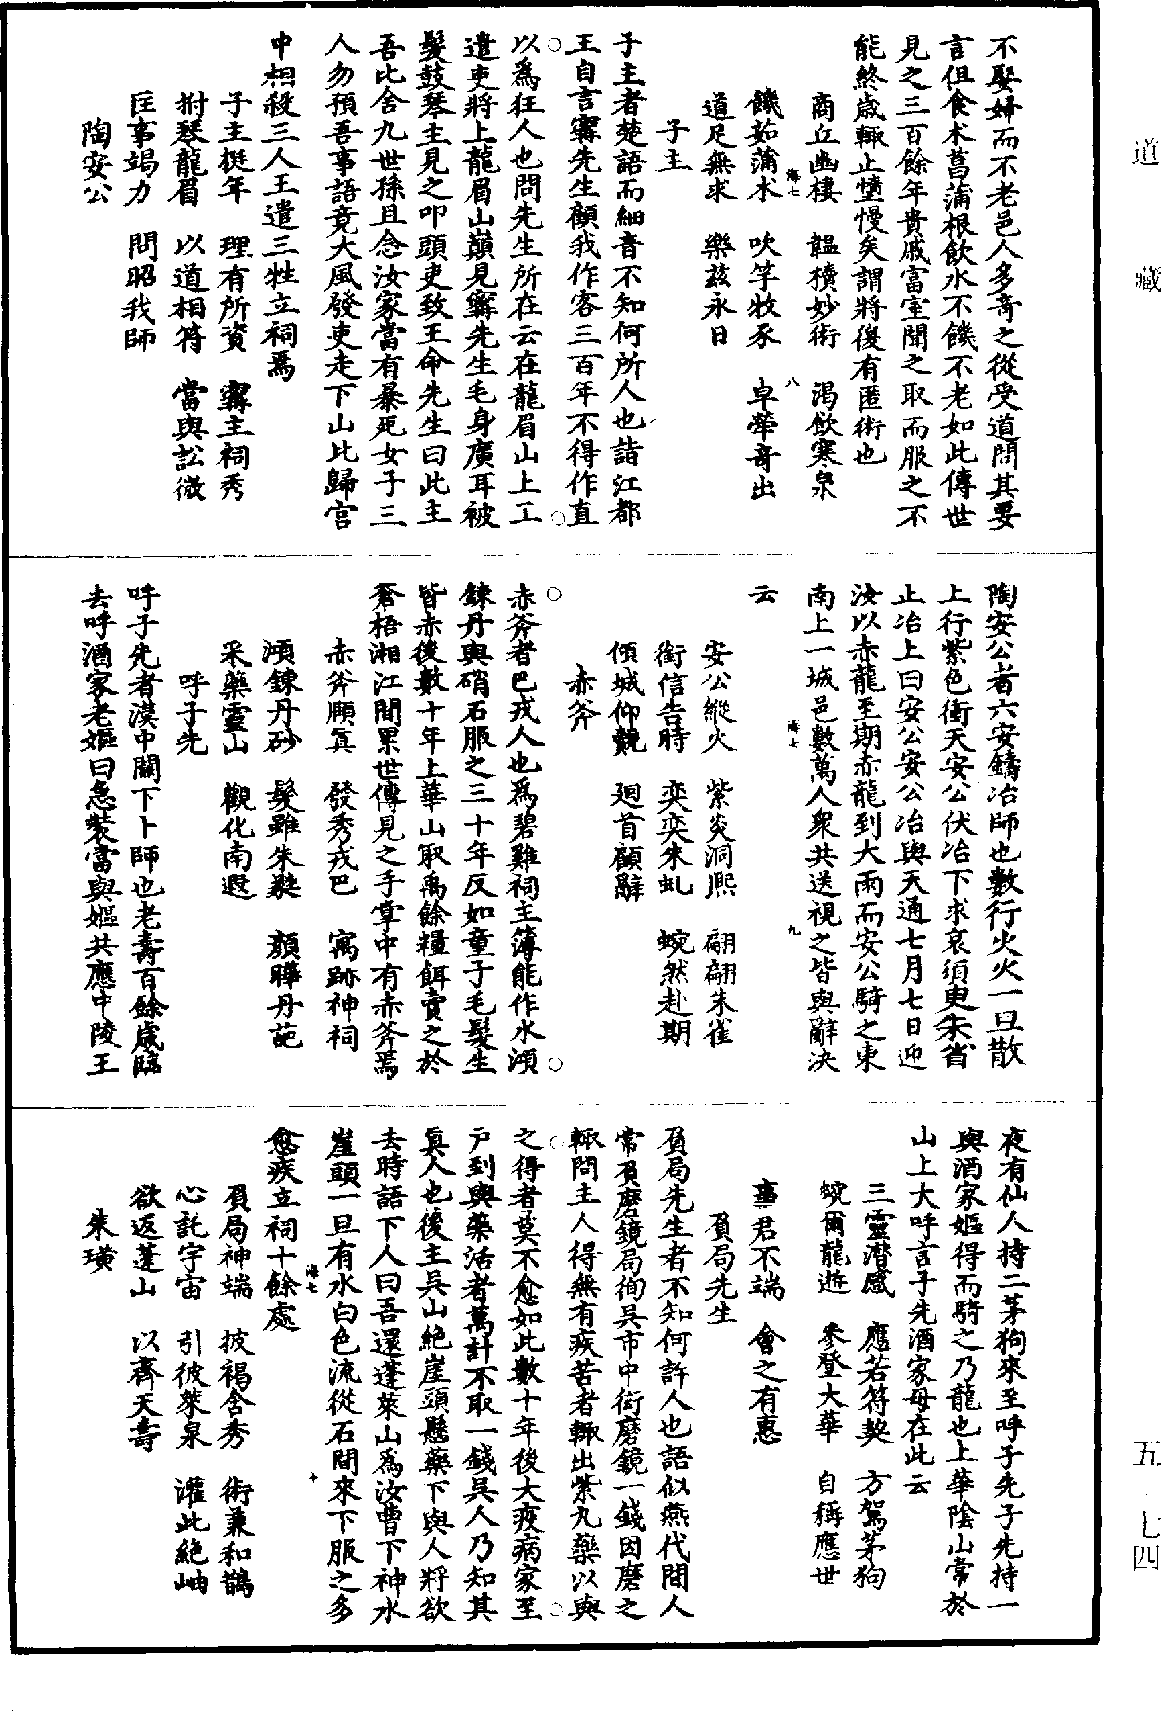 道藏
五·七四
不娶婦而不老邑人多奇之從受道問其要
言但食朮菖蒲根飲水不饑不老如此傳世
見之三百餘年貴戚富室聞之取而服之不
能終歲輒止憤慢矣謂將復有匿術也
商丘幽棲　韞櫝妙術　渴飲寒泉
海七　八
饑茹蒲朮　吹竽牧豕　卓犖奇出
道足無求　樂茲永日
子主
子主者楚語而細音不知何所人也詣江都
王自言甯先生顧我作客三百年不得作直
以爲狂人也問先生所在云在龍眉山上工
遣吏將上龍眉山巔見甯先生毛身廣耳被
髮鼓琴主見之叩頭吏致王命先生曰此主
吾比舍九世孫且念汝家當有暴死女子三
人勿預吾事語竟大風發吏走下山比歸宮
中相殺三人王遣三牲立祠焉
子主挺年　理有所資　甯主祠秀
拊琴龍眉　以道相符　當與訟微
匡事竭力　問昭我師
陶安公
陶安公者六安鑄冶師也數行火火一旦散
上行紫色衝天安公伏冶下求哀須臾朱雀
止冶上曰安公安公冶與天通七月七日迎
汝以赤龍至期赤龍到大雨而安公騎之東
南上一城邑數萬人衆共送視之皆與辭決
海七　九
云
安公縱火　紫炎洞熙　翩翩朱雀
銜信告時　奕奕朱虬　蜿然赴期
傾城仰覿　迴首顧辭
赤斧
赤斧者巴戎人也爲碧雞祠主簿能作水澒
鍊丹與硝石服之三十年反如童子毛髮生
皆赤後數十年上華山取禹餘糧餌賣之於
蒼梧湘江間累世傳見之手掌中有赤斧焉
赤斧頤眞　發秀戎巴　寓跡神祠
澒鍊丹砂　髮雖朱蕤　顏曄丹葩
采藥靈山　觀化南遐
呼子先
呼子先者漢中關下卜師也老壽百餘歲臨
去呼酒家老嫗曰急裝當與嫗共應中陵王
夜有仙人持二茅狗來至呼子先子先持一
與酒家嫗得而騎之乃龍也上華陰山常於
山上大呼言子先酒家母在此云
三靈潛感　應若符契　方駕茅狗
蜿爾龍遊　參登大華　自稱應世
事君不端　會之有惠
負局先生
負局先生者不知何許人也語似燕代間人
常負磨鏡局徇吳市中衒磨鏡一錢因磨之
輒問主人得無有疾苦者輒出紫丸藥以與
之得者莫不愈如此數十年後大疫病家至
戶到與藥活者萬計不取一錢吳人乃知其
眞人也後主吳山絕崖頭懸藥下與人將欲
去時語下人曰吾還蓬萊山爲汝曹下神水
崖頭一旦有水白色流從石間來下服之多
海七　十
愈疾立祠十餘處
負局神端　披褐含秀　術兼和鵲
心託宇宙　引彼萊泉　灌此絕岫
欲返蓬山　以齊天壽
朱璜